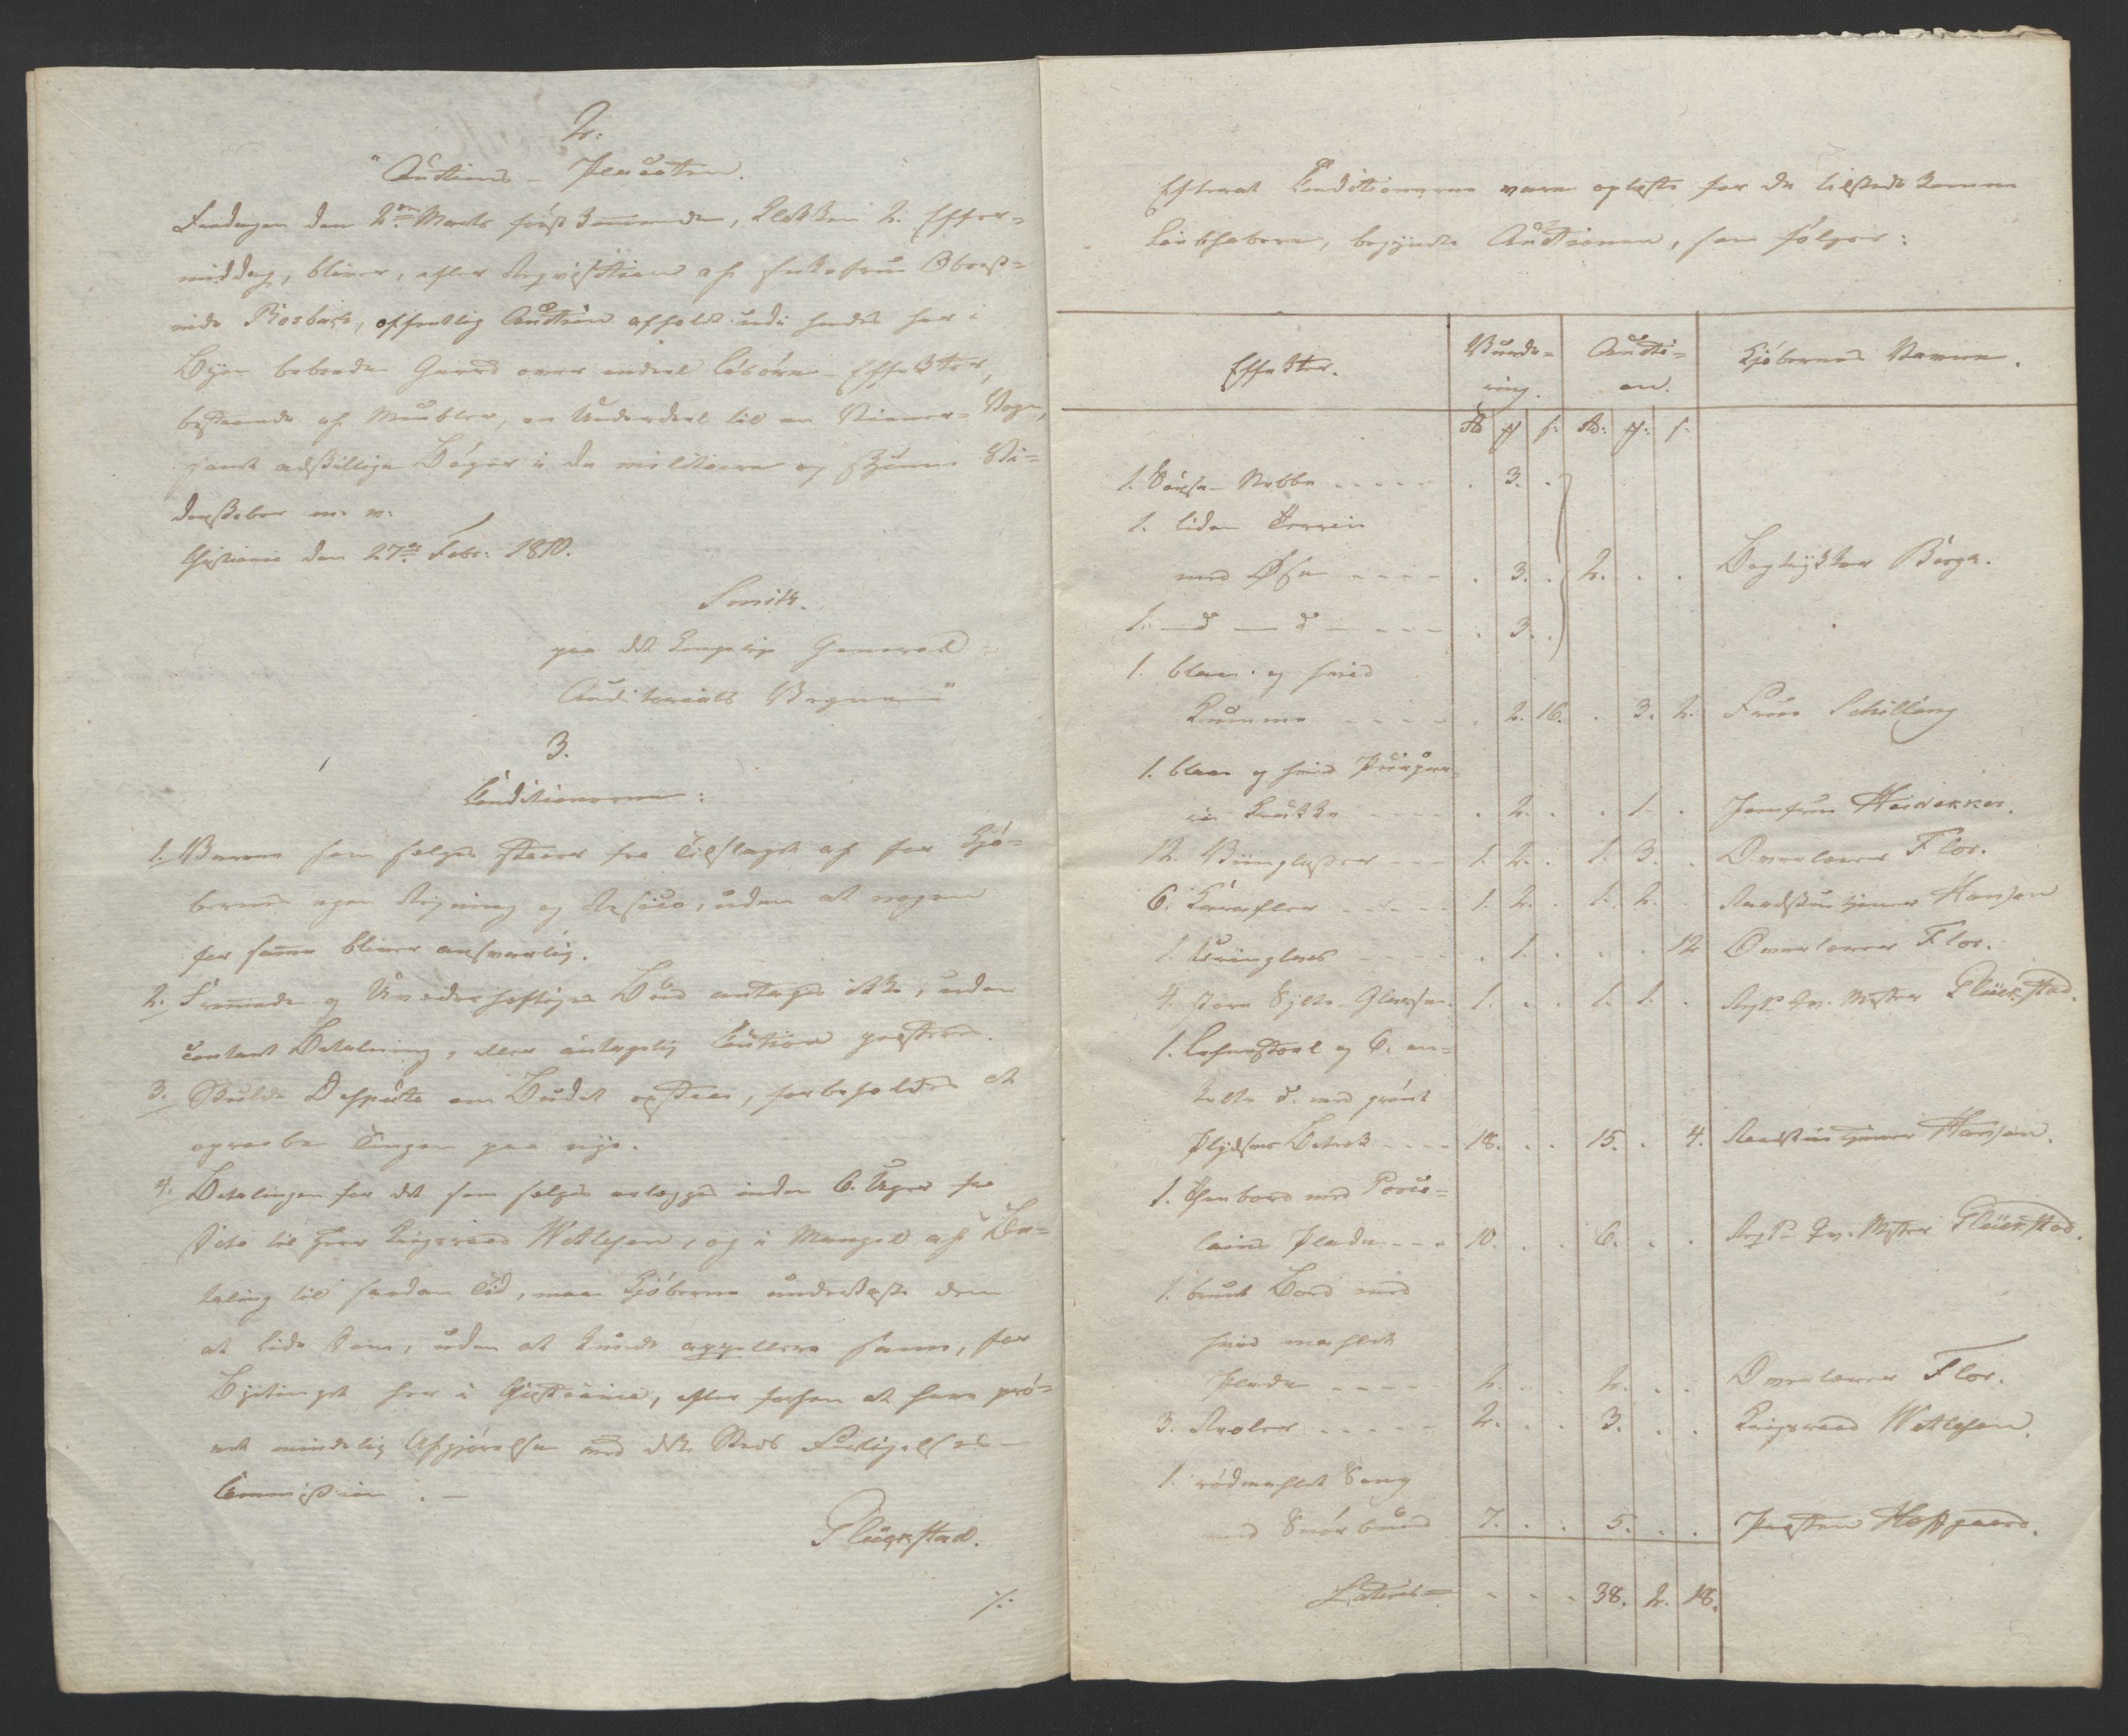 2.
"Auctions-Placaten.
Fredagen den 2den Marts først kommende, Klokken 2 Efter=
middag, bliver, efter Reqvisition af Enkefrue Oberst=
inde Rosbach, offentlig Auction afholdt udi hendes her i
Byen beboende Gaard over endeel Løsøre-Effekter,
bestaaende af Meubler, en Underdeel til en Wiener-Vogn,
samt adskillige Bøger i de militaire og skjønne Vi=
denskaber m. v.
Christiania den 27de Febr: 1810.
Smith.
paa det Kongelige General=
Auditoriats Vegne"
3.
Conditionerne:
1. Varene som sælges staaer fra Tilslaget af for Kjø=
bernes egen Regning og Resico, uden at nogen
for samme bliver ansvarlig.
2. Fremmede og Uvederhæftiges Bud antages ikke, uden
contant Betalning, eller antagelig Caution præsteres.
3. Skulde Dispute om Budet opstaae, forbeholdes at
opraabe Tingen paa nye.
4. Betalingen for det som sælges erlægges inden 6. Uger fra
Dato til Herr Krigsraad Wetlesen, og i Mangel af Be=
taling til saadan Tid, maae Kjøberne underkaste dem
at lide Dom, uden at kunde appellere samme, for
Bytinget her i Christiania, efter forhen at have prø=
vet mindelig Afgjørelse ved dette Steds Forligelses-
Commission. —
Glückstad.
./.
Efterat Conditionerne vare oplæste for de tilstede komne
Liebhabere, begyndte Auctionen, som følger:
Effekter. Vurde= Aucti= Kjøbernes Navne.
ring. on.
Rd # s: Rd: #: s:
1. Søupe-Nebbe ..... . 3. .
1. liden Terrin
med Øse .... . 3. . 2. . . Bogtrykker Berg.
1. — d — d — ... . 3. .
1. blaae og hvid
Kumme ..... . 2. 16. . 3. 2. Frue Schilling
1. blaae og hvid
Krukke .... . 2. . . 1. . Jomfrue Heidekker.
12. Viinglasser ... 1. 2. . 1. 3. . Overlærer Flor.
6. Karafler ..... 1. 2. . 1. 2. . Raadstuetjener Hansen
1. Uringlas .... . 1. . . . 12 Overlærer Flor.
4. store Sylte-Glasse. 1. . . 1. 1. . Regts Qv. Mester Glückstad.
1. Lehnestoel og 6. en=
kelte d. med grønt
Plydses Betræk .... 18. . . 15. . 4. Raadstuetjener Hansen.
1. Theebord med Porce=
lains Plade ... 10. . . 6. . . Regts Qv. Mester Glückstad.
1. bruunt Bord med
hvid mahlet
Plade .... 2. . . 2. . . Overlærer Flor.
3. Reoler ..... 2. . . 3. . . Krigsraad Wetlesen.
1. rødmahlet Seng
med Snørbund 7. . . 5. . . Præsten Hofgaard.
Lateris= . . . 38. 2. 18.